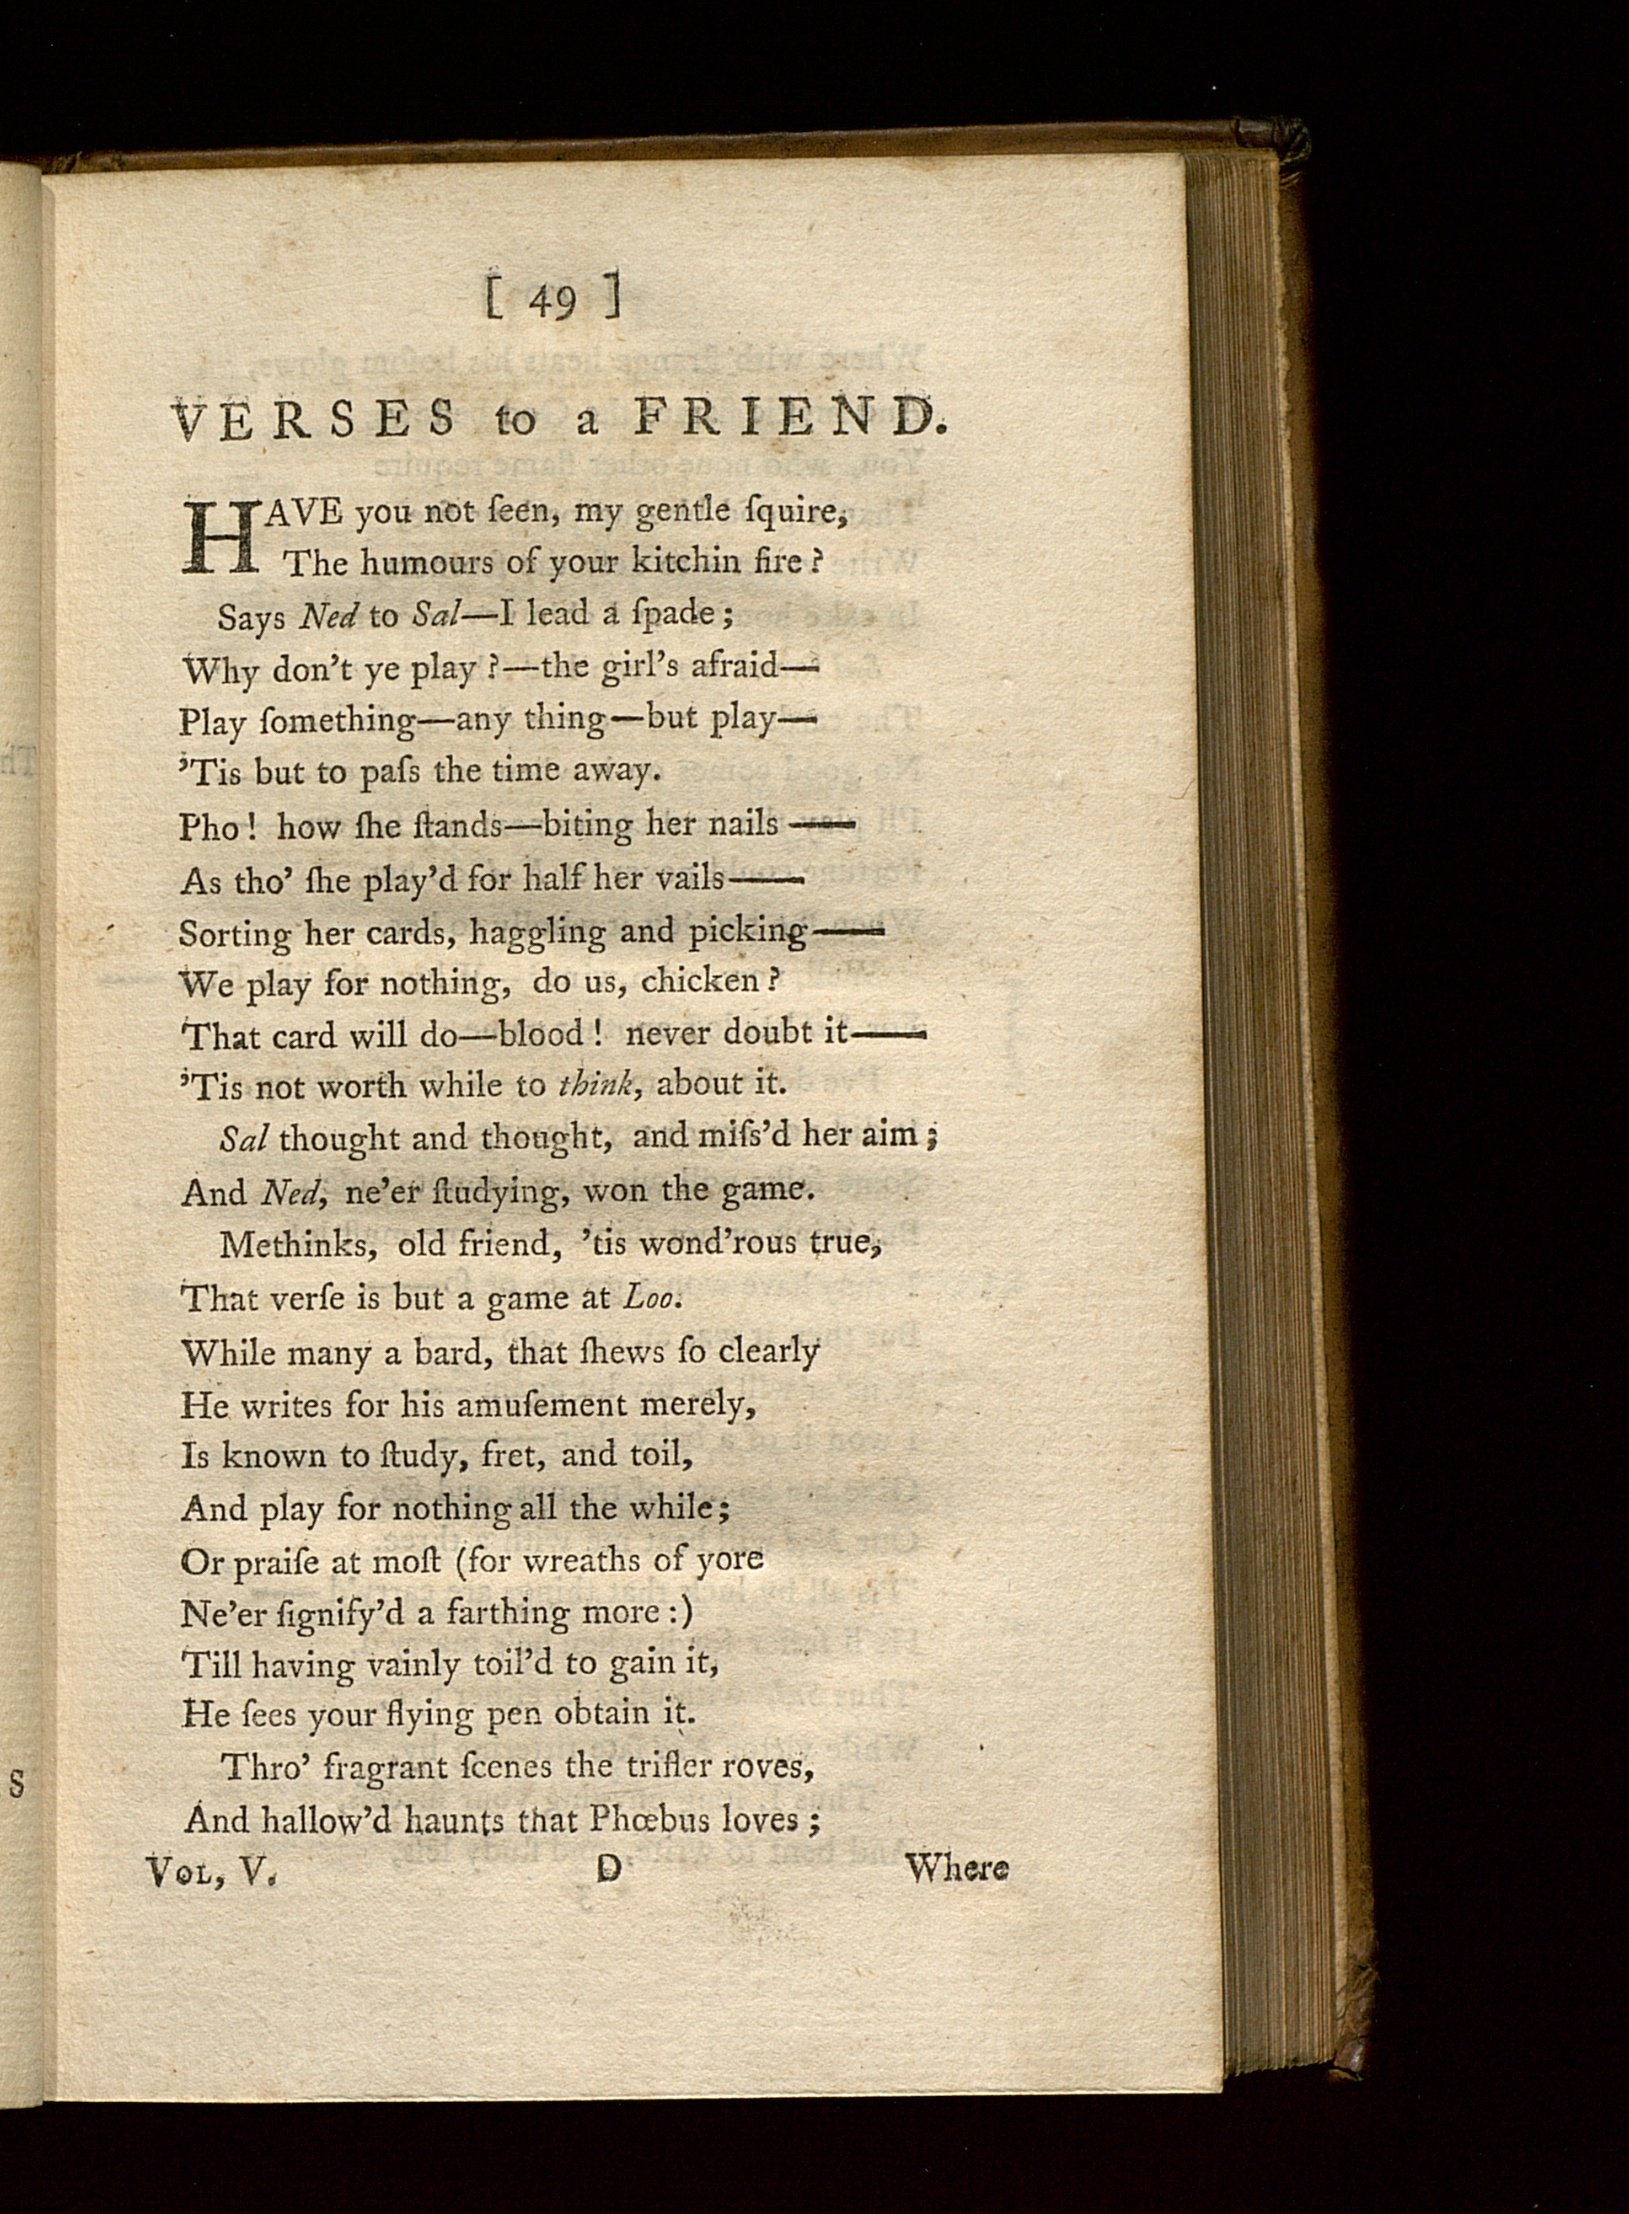 [ 49 ]
VERSES to a FRIEND.
HAVE you not ſeen, my gentle ſquire,
The humours of your kitchin fire?
Says Ned to Sal—I lead a ſpade;
Why don't ye play?—the girl's afraid—
Play ſomething—any thing—but play—
'Tis but to paſs the time away.
Pho! how ſhe ſtands—biting her nails ——
As tho' ſhe play'd for half her vails——
Sorting her cards, haggling and picking——
We play for nothing, do us, chicken?
That card will do—blood! never doubt it——
'Tis not worth while to think, about it.
Sal thought and thought, and miſs'd her aim;
And Ned, ne'er ſtudying, won the game.
Methinks, old friend, 'tis wond'rous true,
That verſe is but a game at Loo.
While many a bard, that ſhews ſo clearly
He writes for his amuſement merely,
Is known to ſtudy, fret, and toil,
And play for nothing all the while;
Or praiſe at moſt (for wreaths of yore
Ne'er ſignify'd a farthing more:)
Till having vainly toil'd to gain it,
He ſees your flying pen obtain it.
Thro' fragrant ſcenes the trifler roves,
And hallow'd haunts that Phœbus loves;
VOL, V. D Where
S